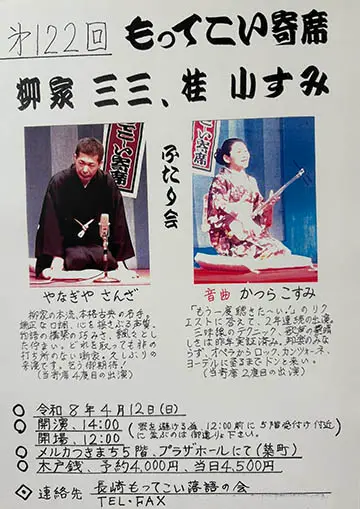 第122回 もってこい寄席
柳家 三三、桂 小すみ
ふたり会
やなぎや さんざ
柳家の本流、本格古典の名手。
端正な口調、心を揺さぶる声質、
物語の構築の巧みさ、毅然とし
た佇まい。どれを取っても非の
打ち所のない噺家。久しぶりの
来演です。乞う御期待!
(当寄席2度目の出演)
音曲 かつら こすみ
「もう一度聴きた〜い。」のリク
エストに答えて、2年連続の出演。
三味線のテクニック、歌唱の素晴
しさは昨年実証済み。邦楽のみな
らず、オペラからロック、カンツォーネ、
ヨーデルに至るまでドンと来い。
(当寄席2度目の出演)
○ 令和8年4月12日(日)
○ 開演、14:00
開場、12:00
(混を避ける為、12:00前に5階受付け付近
に並ぶのは御遠慮下さい。)
○ メルカつきまち5階、プラザホールにて(築町)
○ 木戸銭、予約4,000円、当日4,500円
◇ 連絡先 長崎もってこい落語の会
TEL・FAX